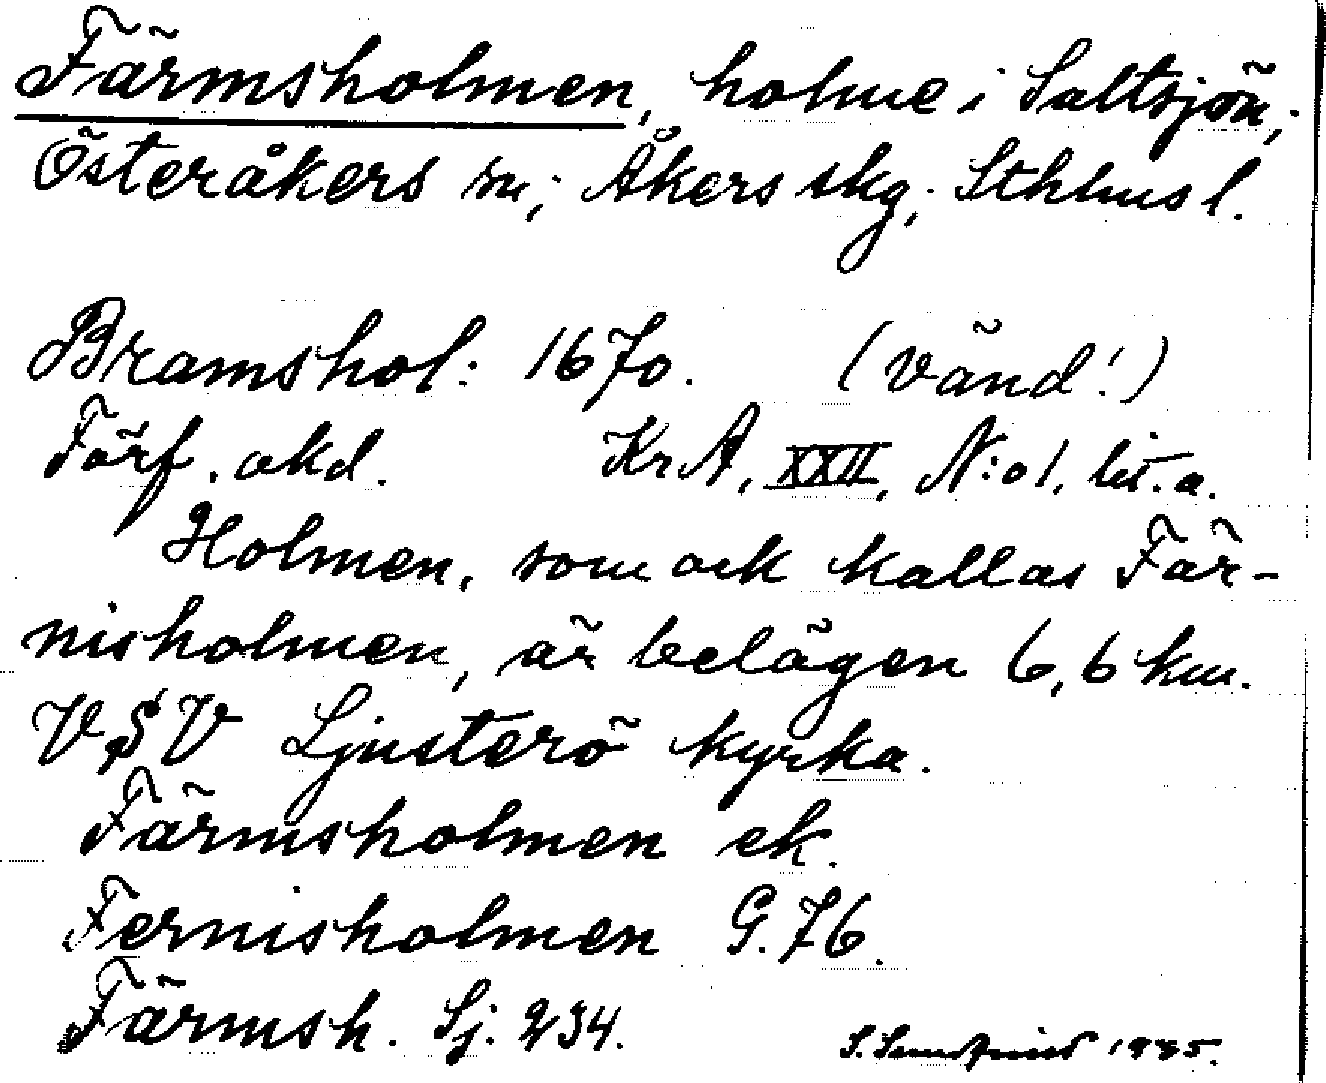 Färmsholmen, holme i Saltsjön;
Österåkers sn; Åkers skg; Sthlms l.
Bramshol: 1670. (vänd!)
Förf. okd. KrA, XXII, N:o 1, lit. a.
Holmen, som ock kallas Fär-
nisholmen, är belägen 6,6 km.
VSV Ljusterö kyrka.
Färmsholmen ek.
Fernisholmen G. 76.
Färmsh. Sj. 234.
S.